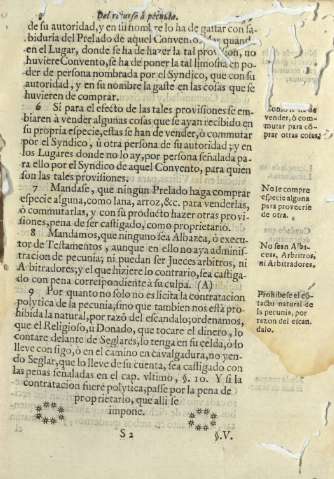 Del recurso à pecunia.
de su autoridad, y en su nombre lo ha de gastar con sa-
biduria del Prelado de aquel Convento. Mas quando
en el Lugar, donde se ha de hazer la tal provision, no
huviere Convento, se ha de poner la tal limosna en po-
der de persona nombrada por el Syndico, que con su
autoridad, y en su nombre la gaste en las cosas que se
huvieren de comprar.
6 Si para el efecto de las tales provisiones se em-
biaren à vender algunas cosas que se ayan recibido en
su propria especie, estas se han de vender, ò commutar
por el Syndico, ù otra persona de su autoridad; y en
los Lugares donde no lo ay, por persona señalada pa-
ra ello por el Syndico de aquel Convento, para quien
son las tales provisiones.
7 Mandase, que ningun Prelado haga comprar
especie alguna, como lana, arroz, &c. para venderlas,
ò commutarlas, y con su producto hazer otras provi-
siones, pena de ser castigado, como proprietario.
8 Mandamos, que ninguno sea Albazea, ò execu-
tor de Testamentos, aunque en ello no aya adminis-
tracion de pecunia; ni puedan ser Jueces arbitros, ni
Arbitradores; y el que hiziere lo contrario, sea castiga-
do con pena correspondiente à su culpa. (A)
9 Por quanto no solo no es licita la contratacion
polytica de la pecunia, sino que tambien nos està pro-
hibida la natural, por razõ del escandalo; ordenamos,
que el Religioso, ù Donado, que tocare el dinero, lo
contare delante de Seglares, lo tenga en su celda, ò lo
lleve consigo, ò en el camino en cavalgadura, no yen-
do Seglar, que lo lleve de su cuenta, sea castigado con
las penas señaladas en el cap. vltimo, §. 10. Y si la
contratacion fuere polytica, passe por la pena de
proprietario, que alli se
impone.
S 2 §. V.
vender, ò com-
mutar para cõ-
prar otras cosas.
No se compre
especie alguna
para proveerse
de otra.
No sean Alba-
ceas, Arbitros,
ni Arbitradores.
Prohibese el cõ-
tacto natural de
la pecunia, por
razon del escan-
dalo.